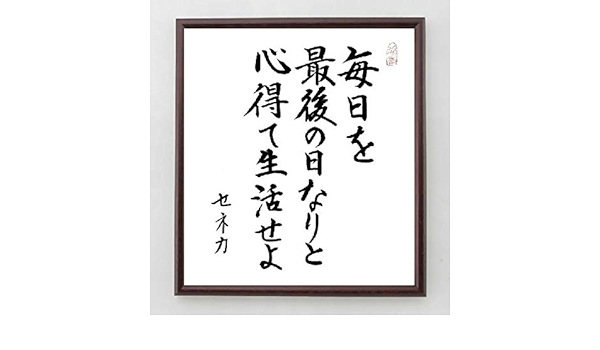 毎日を
最後の日なりと
心得て生活せよ
セネカ